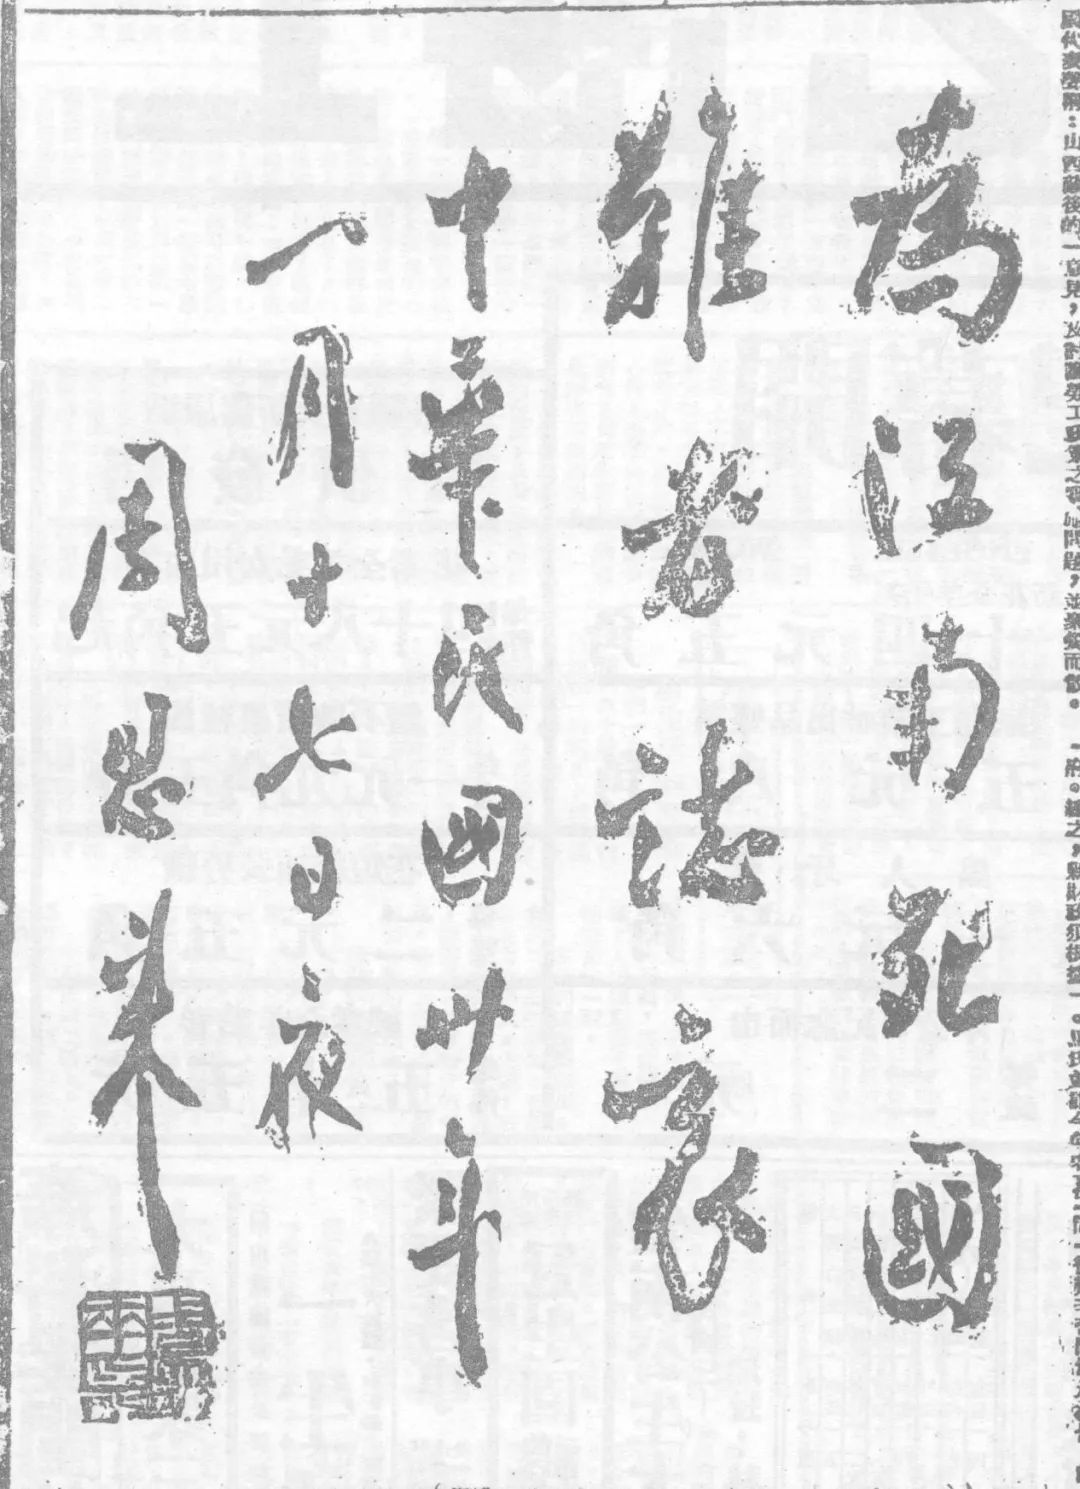 為江南死國
難者誌哀
中華民國卅年
一月十七日夜
周恩來